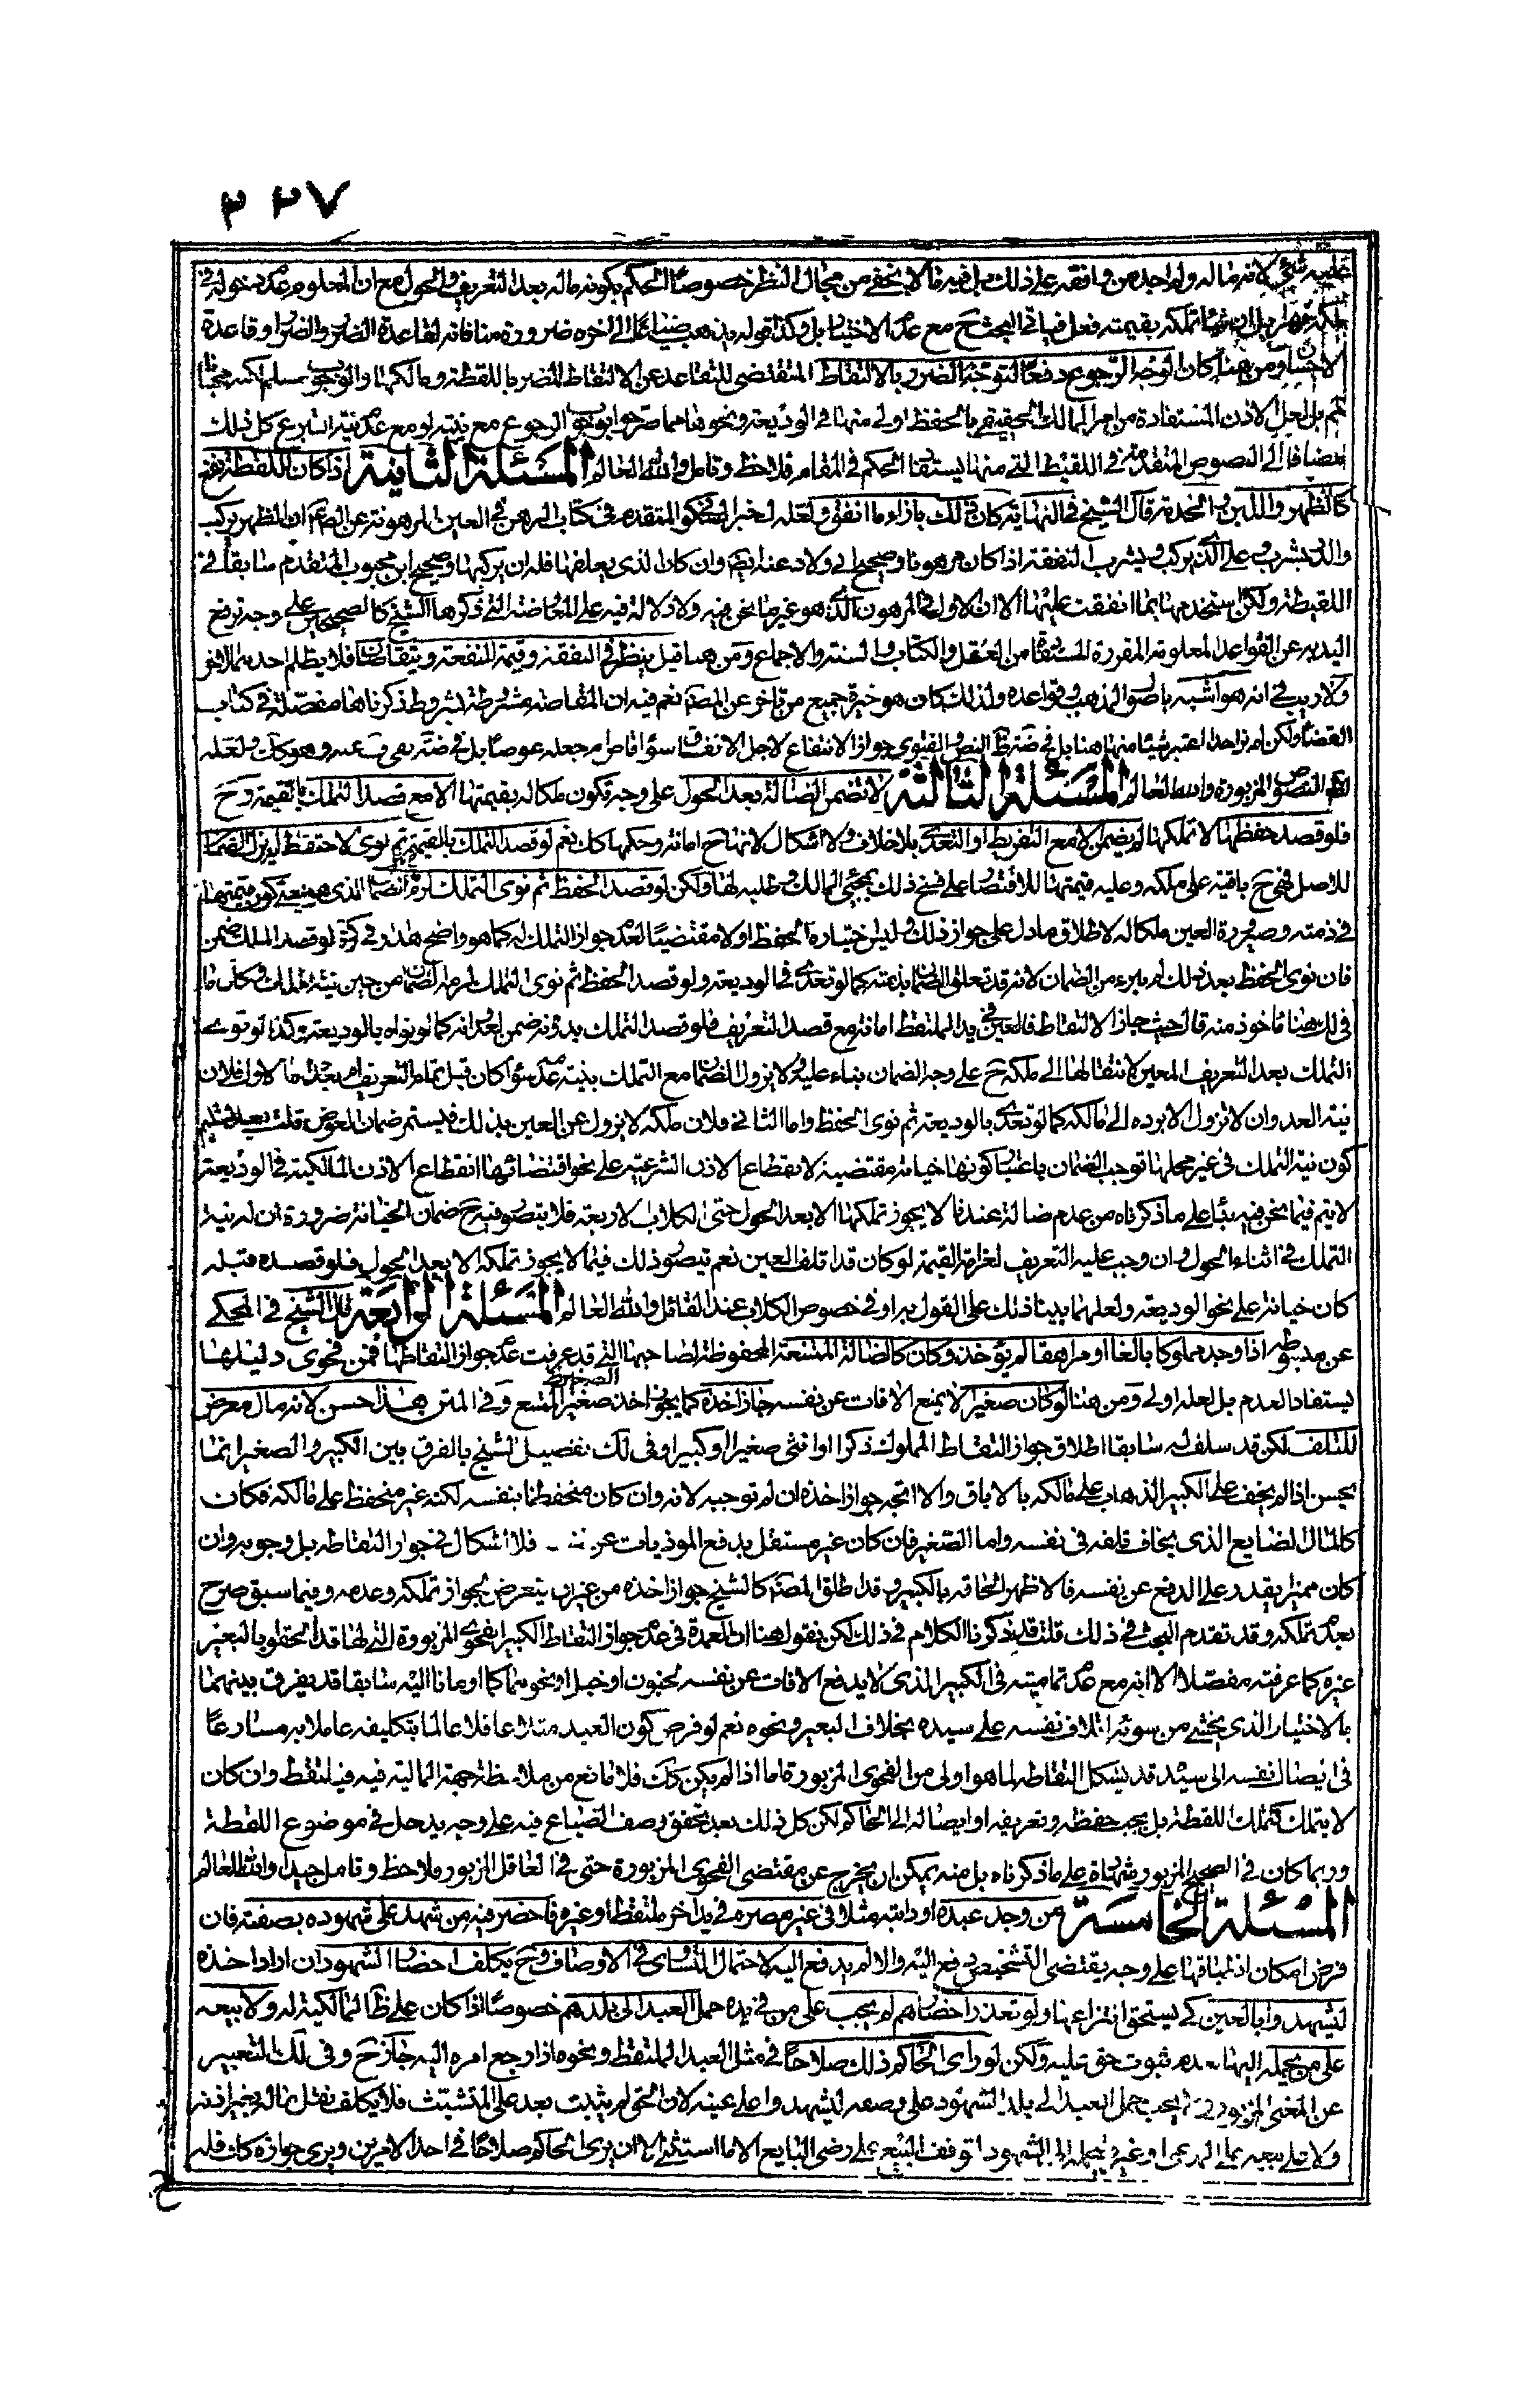 ٢٢٧ ٢
عليه شئ لانه ماله ولم اجد من وافقه على ذلك بل فيه ما لا يخفى من مجال النظر خصوصا الحكم بكونه ماله بعد التعريف في الحول مع ان المعلوم عدم دخوله في
ملكه قهرا بل ان شاء تملكه بقيمته فعل فيأتى البحث ح مع عدم الاختيار بل وكذا قوله يذهب ضياعا الى اخره ضرورة منافاته لقاعدة الضرر والضرار وقاعدة
الاحسان ومن هنا كان الوجه الرجوع دفعا لتوجه الضرر بالالتقاط المقتضى للتقاعد عن الالتقاط المضر باللقطة ومالكها والوجوب مسلم لكنه مجانا
مم بل لعل الاذن المستفادة من امر المالك الحقيقي بالحفظ اولى منها في الوديعة ونحوها مما صرحوا بوجوب الرجوع مع نيته او مع عدم نية التبرع كل ذلك
مضافا الى النصوص المتقدمة في اللقيط التي منها يستفاد الحكم في المقام فلاحظ وتامل والله العالم المسئلة الثانية اذا كان للقطة نفع
كالظهر واللبن والخدمة قال الشيخ في النهاية كان ذلك بازاء ما انفق ولعله لخبر السكوني المتقدم في كتاب الرهن في العين المرهونة عن الصم ان الظهر يركب
والدر يشرب وعلى الذي يركب ويشرب النفقة اذا كان مرهونا وصحيح ابي ولاد عنه ايضم وان كان الذي يعلفها فله ان يركبها وصحيح ابن محبوب المتقدم سابقا في
اللقيطة ولكن يستخدمها بما انفقت عليها الا ان الاول في المرهون الذي هو غير ما نحن فيه ولا دلالة فيه على المعاوضة التي ذكرها الشيخ كالصحيحين على وجه ترفع
اليد به عن القواعد المعلومة المقررة المستفادة من العقل والكتاب والسنة والاجماع ومن هنا قيل ينظر في النفقة وقيمة المنفعة ويتقاصان فلا يظلم احدهما الاخر
ولا ريب في انه هو اشبه باصول المذهب وقواعده ولذلك كان هو خيرة جميع من تاخر عن المصم نعم فيه ان المقاصة مشروطة بشروط ذكرناها مفصلة في كتاب
القضاء ولكن لم نر احدا اعتبر شيئا منها هنا بل في ظاهر النص والفتوى جواز الانتفاع لاجل الانفاق سواء قاص ام جعله عوضا بل في وهو كك ولعله
النصوص المزبورة والله العالم المسئلة الثالثة لا تضمن الضالة بعد الحول على وجه تكون ملكا له بقيمتها الا مع قصد التملك بالقيمة وح
فلو قصد حفظها لا تملكها لم يضمن الا مع التفريط او التعدي بلا خلاف ولا اشكال لانها ح امانة وحكمها كك نعم لو قصد التملك بالقيمة ثم نوى الاحتفاظ لم يزل الضمان
للاصل فهي ح باقية على ملكه وعليه قيمتها للاقتصار على فسخ ذلك بمجئ المالك وطلبه لها ولكن لو قصد الحفظ ثم نوى التملك لزم الضمان الذي هو بمعنى كون قيمتها
في ذمته وصيرورة العين ملكا له لاطلاق ما دل على جواز ذلك وليس اختياره الحفظ اولا مقتضيا لعدم جواز التملك له كما هو واضح هذا وفي كرة لو قصد الملك ضمن
فان نوى الحفظ بعد ذلك لم يبرء من الضمان لانه قد تعلق الضمان بذمته كما لو تعدى في الوديعة ولو قصد الحفظ ثم نوى التملك لزمه الضمان من حين نية التملك وكان ما
في لك هنا ماخوذ منه قال حيث جاز الالتقاط فالعين في يد الملتقط امانة مع قصد التعريف فلو قصد التملك بدونه ضمن لعدوانه كما لو نواه بالوديعة وكذا لو نوى
التملك بعد التعريف المعين لانتقالها الى ملكه ح على وجه الضمان بناء عليه ولا يزول الضمان مع التملك بنية عدمه سواء كان قبل تمام التعريف ام بعده اما الاول فلان
نية العدوان لا تزول الا برده الى مالكه كما لو تعدى بالوديعة ثم نوى الحفظ واما الثاني فلان ملكه لا يزول عن العين بذلك فيستمر ضمان العوض قلت بعد تسليم
كون نية التملك في غير محلها توجب الضمان باعتبار كونها خيانة مقتضية لانقطاع الاذن الشرعية على نحو اقتضائها انقطاع الاذن المالكية في الوديعة
لا يتم فيما نحن فيه بناء على ما ذكرناه من عدم ضالة عندنا لا يجوز تملكها الا بعد الحول حتى الكلاب الاربعة فلا يتصور فيه ح ضمان الخيانة ضرورة ان له نية
التملك في اثناء الحول وان وجب عليه التعريف لغرامة القيمة لو كان قد اتلف العين نعم يتصور ذلك فيما لا يجوز تملكه الا بعد الحول فلو قصده قبله
كان خيانة على نحو الوديعة ولعلهما بينا ذلك على القول به او في خصوص الكلاب عند القائل والله العالم المسئلة الرابعة قال الشيخ في المحكي
عن مبسوطه اذا وجد مملوكا بالغا او مراهقا لم يؤخذ وكان كالضالة الممتنعة المحفوظة لصاحبها التي قد عرفت عدم جواز التقاطها فمن فحوى دليلها
يستفاد العدم بل لعله اولى ومن هنا لو كان صغيرا لا يمنع الافات عن نفسه جاز اخذه كما يجوز اخذ صغير الممتنع وفي المتن بهذا حسن لانه مال معرض
للتلف لكن قد سلف له سابقا اطلاق جواز التقاط المملوك ذكرا او انثى صغيرا او كبيرا وفي لك تفصيل الشيخ بالفرق بين الكبير والصغير انما
يحسن اذا لم يخف على الكبير الذهاب على مالكه بالاباق والا اتجه جواز اخذه ان لم نوجبه لانه وان كان منحفظا بنفسه لكنه غير منحفظ على مالكه فكان
كالمال الضايع الذي يخاف تلفه في نفسه واما الصغير فان كان غير مستقل بدفع الموذيات عن فلا اشكال في جواز التقاطه بل وجوبه وان
كان مميزا يقدر على الدفع عن نفسه فالاظهر الحاقه بالكبير وقد اطلق المصم كالشيخ جواز اخذه من غير ان يتعرض لجواز تملكه وعدمه وفيما سبق صرح
بعدم تملكه وقد تقدم البحث في ذلك قلت قد ذكرنا الكلام في ذلك لكن نقول هنا ان العمدة في عدم جواز التقاط الكبير الفحوى المزبورة التي لها قد الحقوا بالبعير
غيره كما عرفته مفصلا الا انه مع عدم تماميته في الكبير الذي لا يدفع الافات عن نفسه لجنون او خبل او نحوهما كما اومانا اليه سابقا قد يفرق بينهما
بالاختيار الذي يخشى من سوئه اتلاف نفسه على سيده بخلاف البعير ونحوه نعم لو فرض كون العبد متشرعا فلا عالما بتكليفه عاملا به مسارعا
في ايصال نفسه الى سيده قد يشكل التقاطه لما هو اولى من الفحوى المزبورة اما اذا لم يكن كك فلا مانع من ملاحظة جهة المالية فيه فيلتقط وان كان
لا يتملك كتملك اللقطة بل يجب حفظه وتعريفه او ايصاله الى الحاكم لكن كل ذلك بعد تحقق وصف الضياع فيه على وجه يدخل في موضوع اللقطة
وربما كان في الصحيح المزبور شهادة على ما ذكرناه بل منه يمكن ان يخرج عن مقتضى الفحوى المزبورة حتى في العاقل المزبور فلاحظ وتامل جيدا والله العالم
المسئلة الخامسة من وجد عبده او دابته مثلا في غير مصره في يد اخر ملتقط او غيره فاحضر فيه من شهد على شهوده بصفته فان
فرض امكان انطباقها على وجه يقتضى التشخيص دفع اليه والا لم يدفع اليه لاحتمال التساوى في الاوصاف وح يكلف احضار الشهود ان اراد اخذه
ليشهدوا بالعين كي يستحق انتزاعها ولو تعذر احضارهم لم يجب على من في يده حمل العبد الى بلدهم خصوصا اذا كان على ظاهر المالكية له ولا بيعه
على من يحمله اليها لعدم ثبوت حق عليه ولكن لو راى الحاكم ذلك صلاحا في مثل العبد الملتقط ونحوه مما ارجع امره اليه جاز ح وفي لك التعبير
عن المعنى المزبور لم يجب حمل العبد الى بلد الشهود على وصفه ليشهدوا على عينه لان الحق لم يثبت بعد على المتشبث فلا يكلف نقل ماله بغير اذنه
ولا على بيعه على المدعى او غيره ليحمله الى الشهود لتوقف البيع على رضى البايع الا ما استثنى الا ان يرى الحاكم صلاحا في احد الامرين ويرى جوازه كك فله